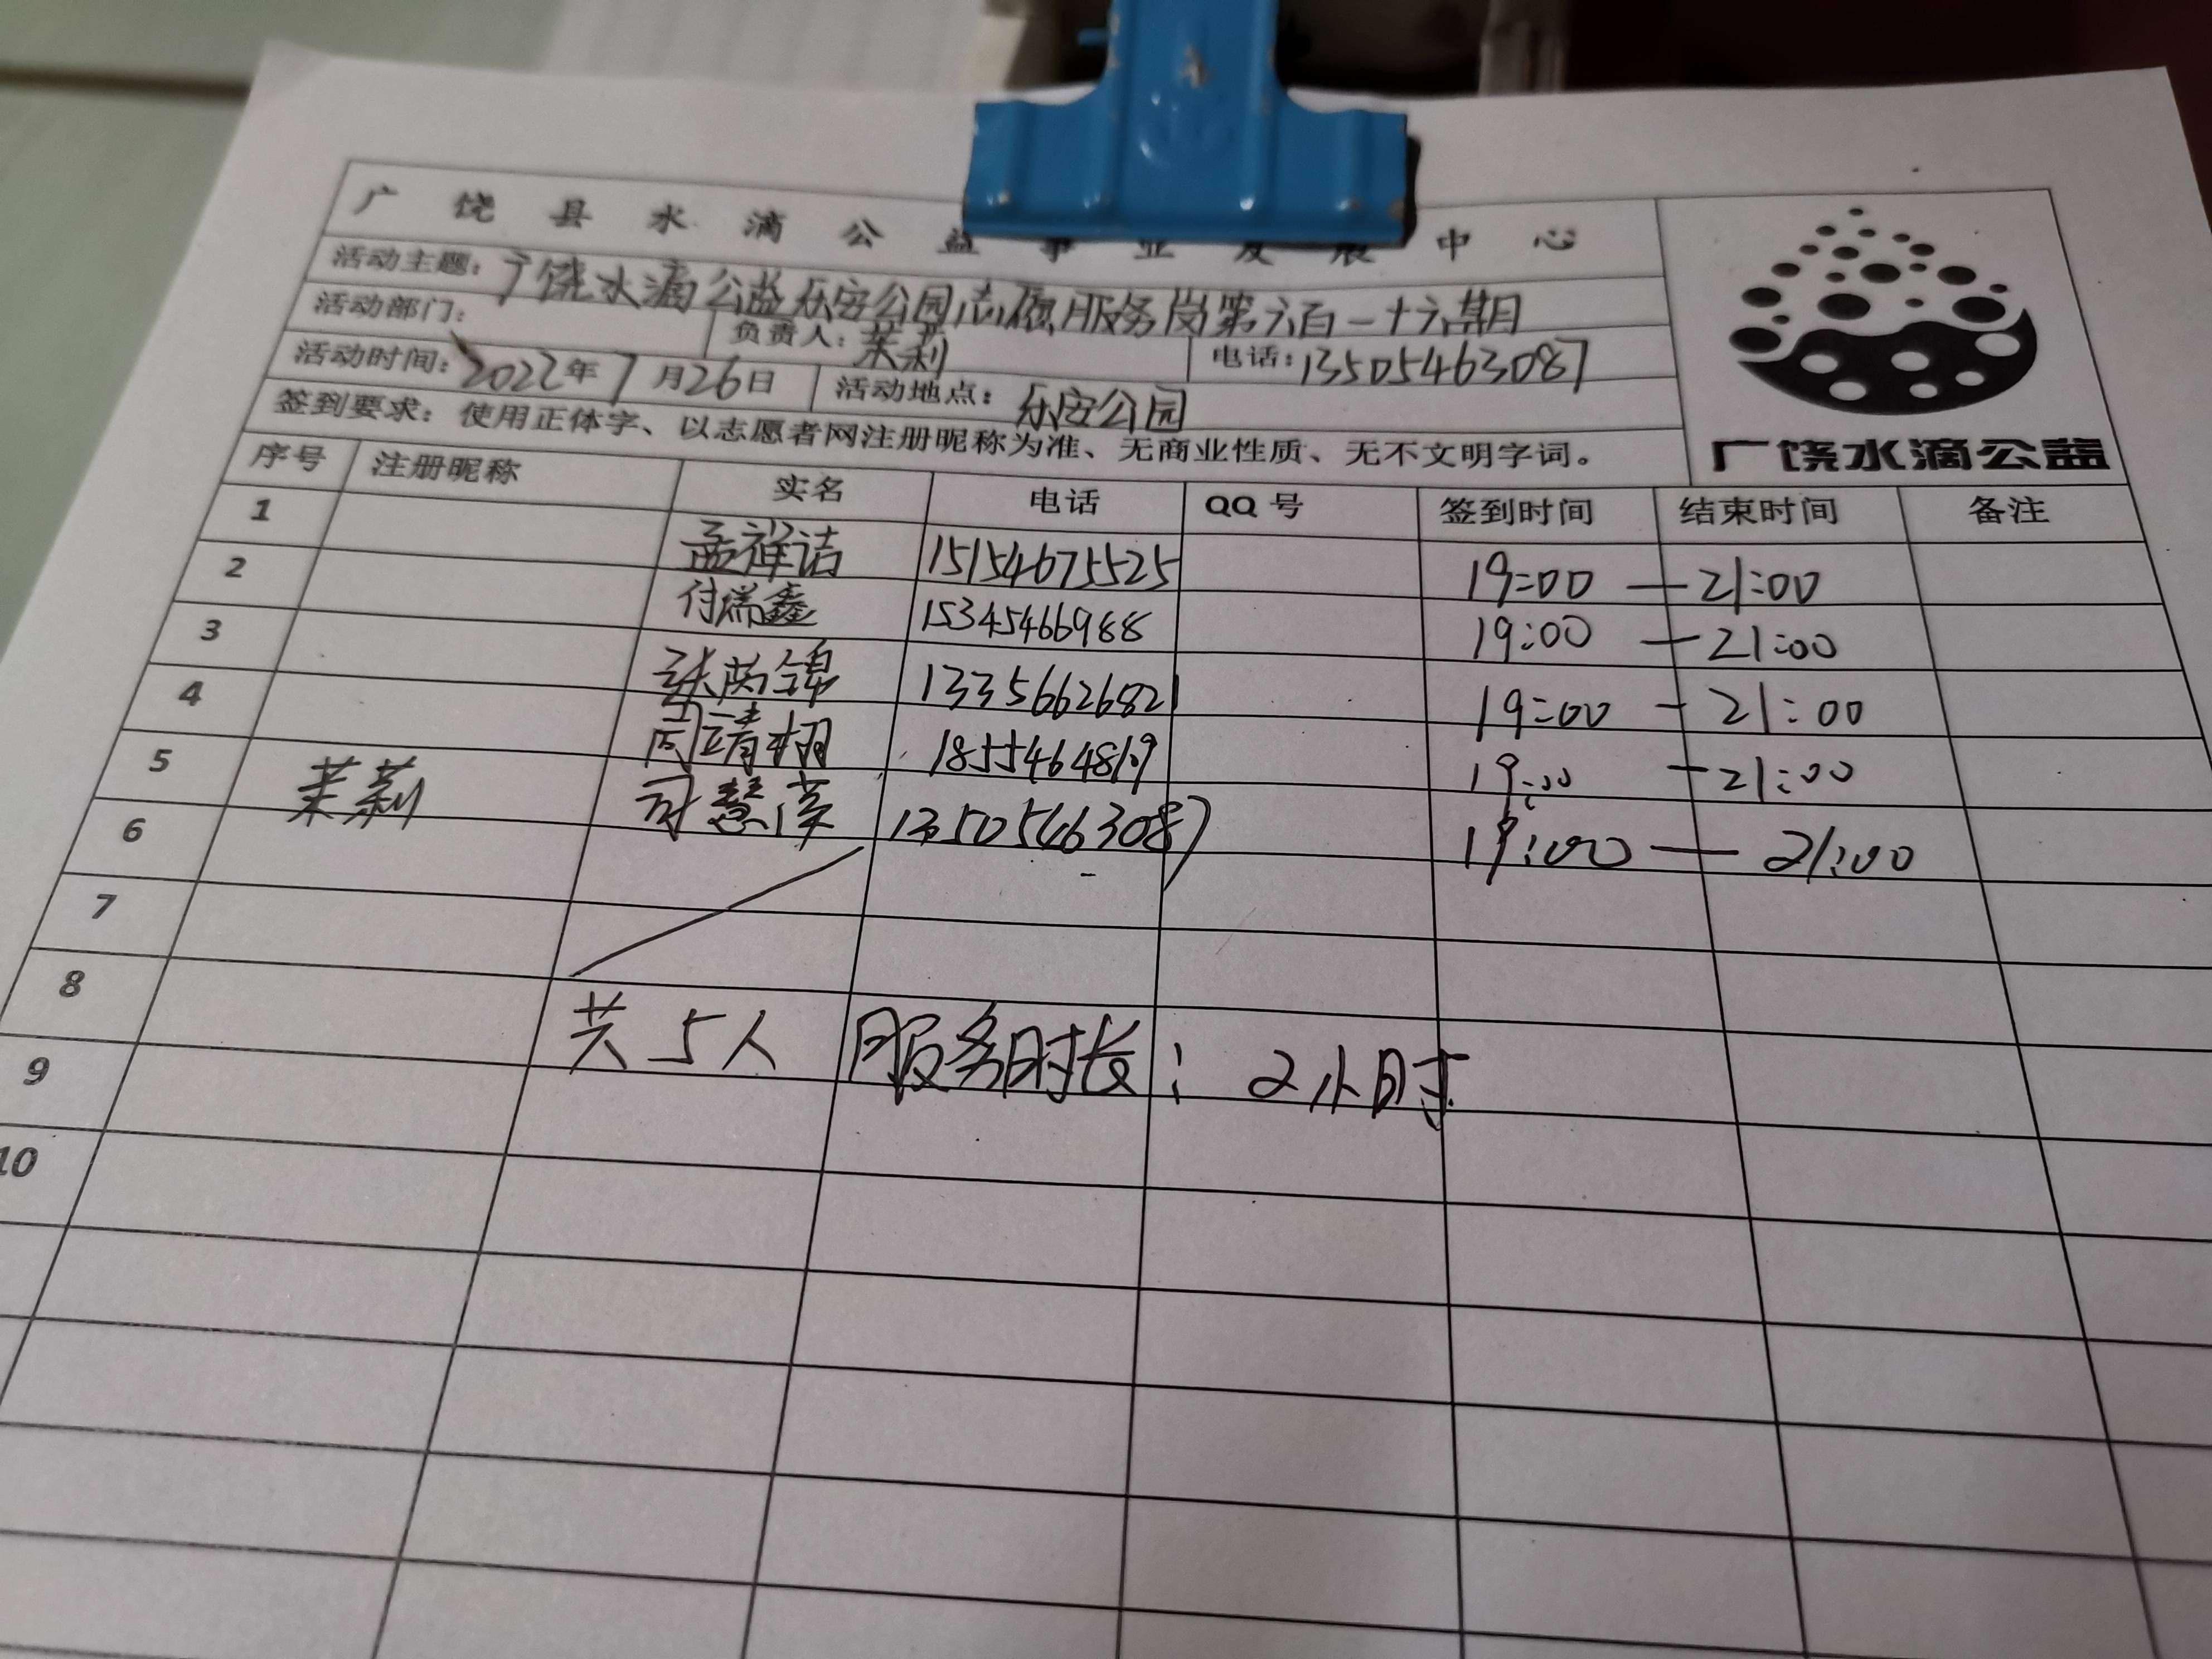 广饶县水滴公益事业发展中心
活动主题：广饶水滴公益乐安公园志愿服务岗第六百一十六期
活动部门： 负责人：茉莉 电话：13505463087
活动时间：2022年7月26日 活动地点：乐安公园
签到要求：使用正体字、以志愿者网注册昵称为准、无商业性质、无不文明字词。
广饶水滴公益
序号 注册昵称 实名 电话 QQ号 签到时间 结束时间 备注
1 孟祥洁 15154675525 19:00 — 21:00
2 付瑞鑫 15345466988 19:00 — 21:00
3 张芮锦 13356626821 19:00 — 21:00
4 周靖栩 19:00 — 21:00
5 茉莉 司慧 13505463087 19:00 — 21:00
6
7
8 共5人 服务时长：2小时
9
10